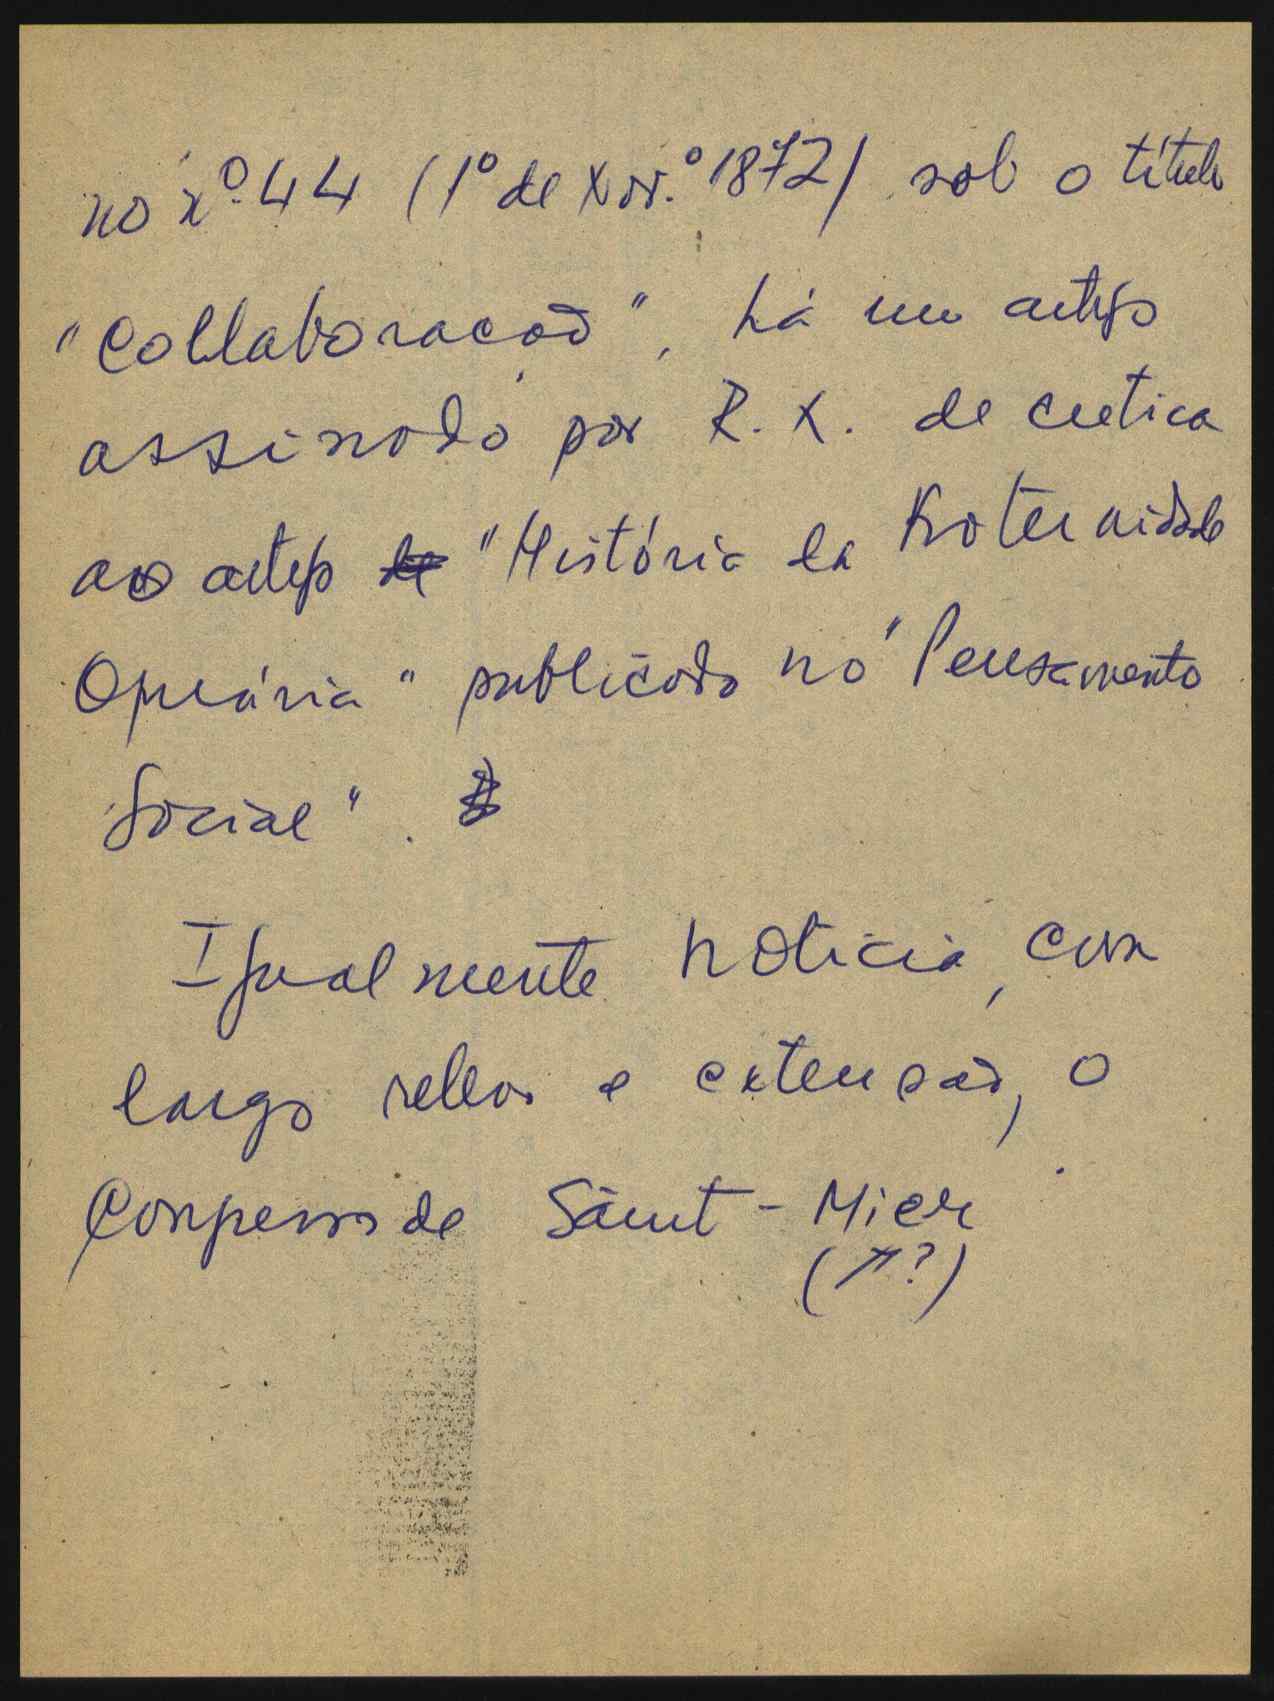 no nº. 44 (1º de Nov.º 1872) sob o título
"Collaboração", há um artigo
assinado por R. X. de crítica
ao artigo de "História da Fraternidade
Operária" publicado no "Pensamento
Social".
Igualmente noticia, com
largo relevo e extensão, o
Congresso de Saint-Mier
(?)